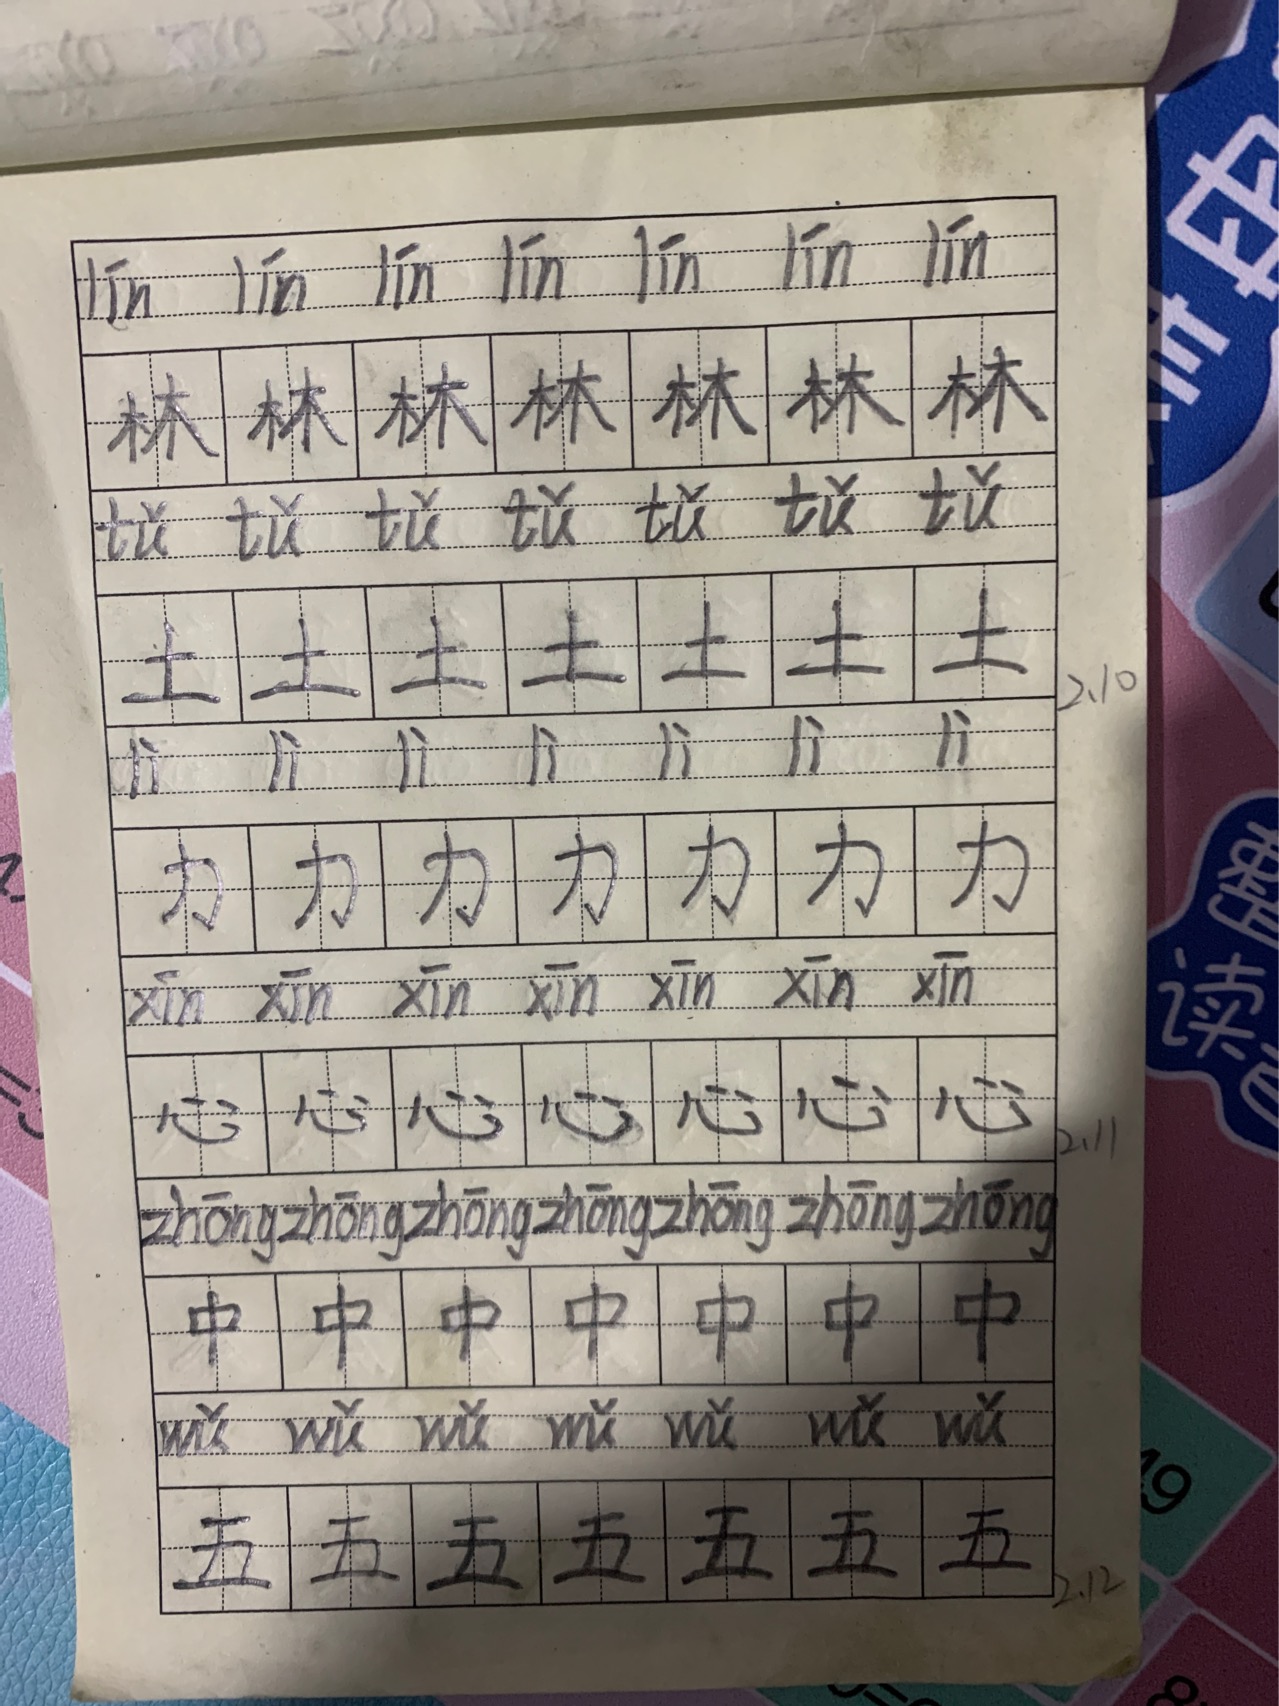 lín lín lín lín lín lín lín
林 林 林 林 林 林 林
tǔ tǔ tǔ tǔ tǔ tǔ tǔ
土 土 土 土 土 土 土 2.10
lì lì lì lì lì lì lì
力 力 力 力 力 力 力
xīn xīn xīn xīn xīn xīn xīn
心 心 心 心 心 心 心 2.11
zhōng zhōng zhōng zhōng zhōng zhōng zhōng
中 中 中 中 中 中 中
wǔ wǔ wǔ wǔ wǔ wǔ wǔ
五 五 五 五 五 五 五 2.12
读